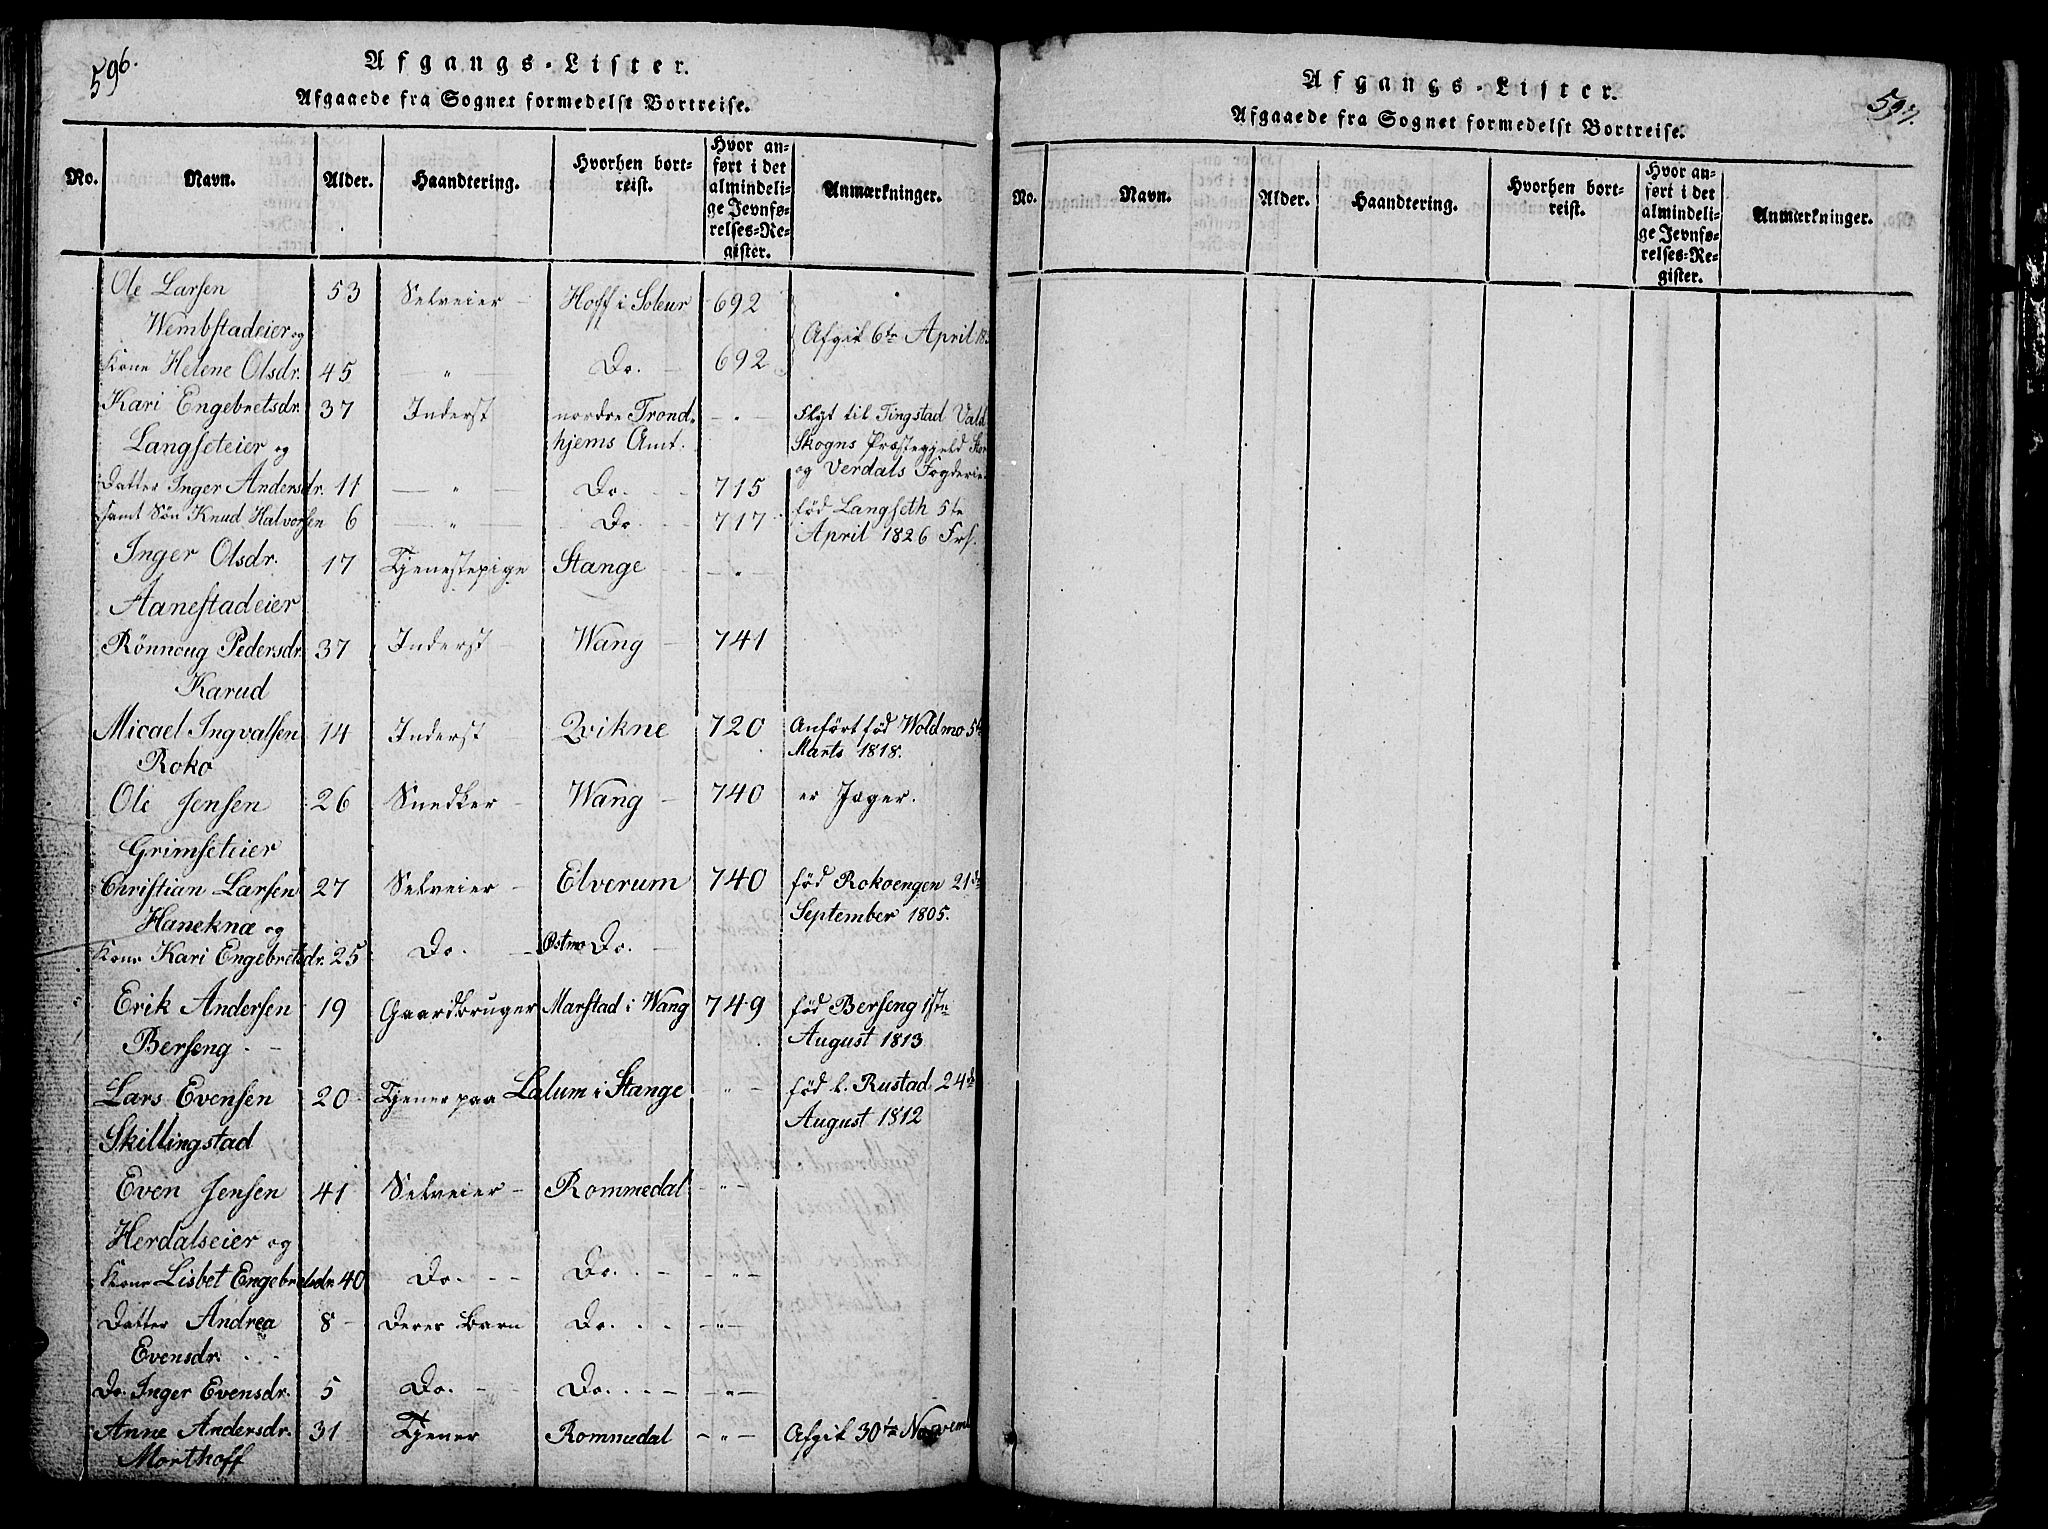 596.
Afgangs-Lister.
Afgaaede fra Sognet formedelst Bortreise.
No. Navn. Alder. Haandtering. Hvorhen bortreist. Hvor anført i det almindelige Jevnførelses-Register. Anmærkninger.
Ole Larsen 53 Selveier Hoff i Soleur 692
Wembstadeier og Afgik 6te April
Kone Helene Olsdr. 45 " Do. 692
Kari Engebretsdr. 37 Inderst nordre Trond- " Flyt til Tingstad Vald
Langseteier og hjems Amt. Skogns Præstegjeld
og Verdals Fogderie
Datter Inger Andersdr. 11 " Do. 715
Samt Søn Knud Halvorsen 6 " Do. 717 fød Langseth 5te
April 1826 Frs.
Inger Olsdr. 17 Tjenestepige Stange "
Aanestadeier
Rönnoug Pedersdr. 37 Inderst Wang 741
Karud
Micael Ingvalsen 14 Inderst Qvikne 720 Anført fød Woldmo 5te
Roko Marts 1818.
Ole Jensen 26 Snedker Wang 740 er Jæger.
Grimseteier
Christian Larsen 27 Selveier Elverum 740 fød Rokoengen 21de
Haneknæ og September 1805.
Kone Kari Engebretsdr. 25 Do. Østmo Do.
Erik Andersen 19 Gaardbruger Marstad i Wang 749 fød Berseng 1ste
Berseng August 1813
Lars Evensen 20 Tjener paa Lalum i Stange " fød l. Rustad 24de
Skillingstad August 1812
Even Jensen 41 Selveier Rommedal "
Herdalseier og
Kone Lisbet Engebretsdr. 40 Do. Do. "
Datter Andrea 8 Deres Barn Do. "
Evensdr.
Do. Inger Evensdr. 5 Do. Do. "
Anne Andersdr. 31 Tjener Rommedal " Afgik 30te Novemb
Morthoff
597.
Afgangs-Lister.
Afgaaede fra Sognet formedelst Bortreise.
No. Navn. Alder. Haandtering. Hvorhen bortreist. Hvor anført i det almindelige Jevnførelses-Register. Anmærkninger.